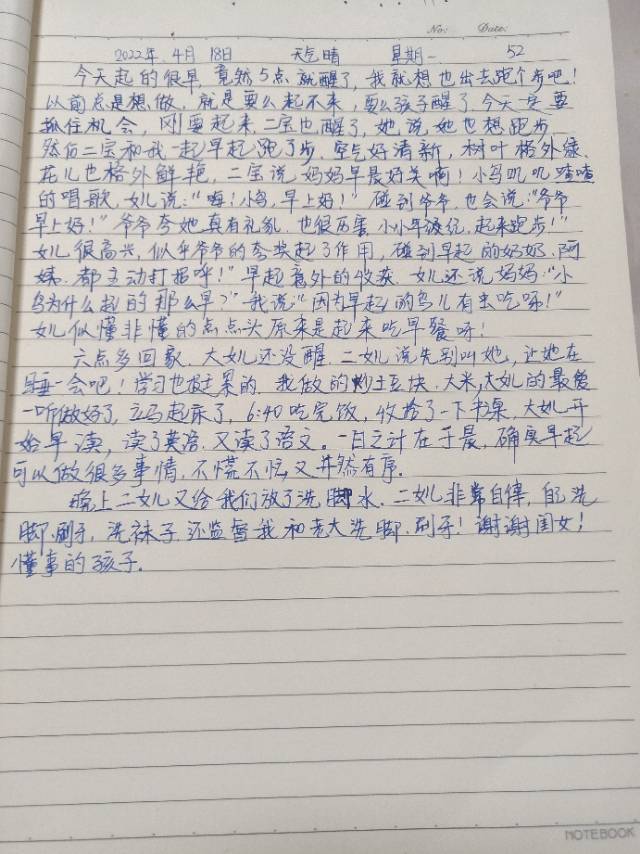 No: Date:
2022年.4月18日 天气晴 星期一 52
今天起的很早,竟然5点就醒了,我就想也出去跑个步吧!
以前总是想做,就是要么起不来,要么孩子醒了.今天一定要
抓住机会,刚要起来.二宝也醒了,她说她也想跑步
然后二宝和我一起早起跑了步.空气好清新,树叶格外绿
花儿也格外鲜艳,二宝说,妈妈早晨好美啊!小鸟叽叽喳喳
的唱歌,女儿说:“嗨!小鸟,早上好!”碰到爷爷.也会说:“爷爷
早上好!”爷爷夸她真有礼貌.也很厉害,小小年级,起来跑步!”
女儿很高兴,似乎爷爷的夸奖起了作用,碰到早起的奶奶.阿
姨.都主动打招呼!”早起意外的收获.女儿还说妈妈:“小
鸟为什么起的那么早?”我说“因为早起的鸟儿有虫吃呀!”
女儿似懂非懂的点点头原来是起来吃早餐呀!
六点多回家.大女儿还没醒.二女儿说先别叫她,让她在
睡一会吧!学习也挺累的.我做的炒土豆块.大米,大女儿的最爱
一听做好了,立马起床了,6:40吃完饭,收拾了一下书桌,大女儿开
始早读,读了英语.又读了语文。一日之计在于晨,确实早起
可以做很多事情,不慌不忙又井然有序.
晚上二女儿又给我们放了洗脚水.二女儿非常自律,自己洗
脚.刷牙,洗袜子.还监督我和老大洗脚.刷牙!谢谢闺女!
懂事的孩子.
NOTEBOOK